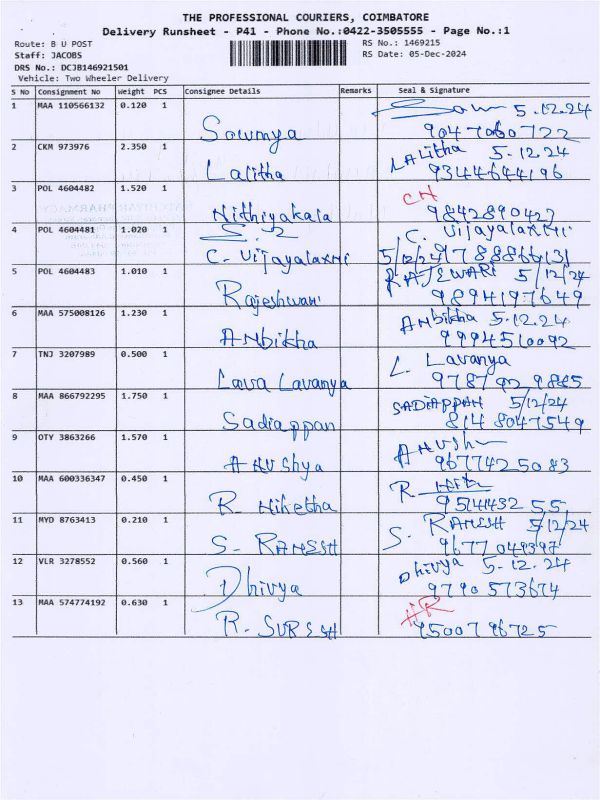 THE PROFESSIONAL COURIERS, COIMBATORE
Delivery Runsheet - P41 - Phone No.:0422-3505555 - Page No.:1
Route: B U POST
Staff: JACOBS
DRS No.: DCJB146921501
Vehicle: Two Wheeler Delivery
RS No.: 1469215
RS Date: 05-Dec-2024
S No Consignment No Weight PCS Consignee Details Remarks Seal & Signature
1 MAA 110566132 0.120 1 Sowmya 5.12.24
9047060722
2 CKM 973976 2.350 1 Lalitha LALitha 5.12.24
9344644196
3 POL 4604482 1.520 1 Nithiyakala CH
9842890427
4 POL 4604481 1.020 1 C. Vijayalaxmi C. Vijayalaxmi
5/12/24
5 POL 4604483 1.010 1 Rajeshwari RAJEWARI 5/12/24
9894197649
6 MAA 575008126 1.230 1 Ambikha Ambikha 5.12.24
9994510092
7 TNJ 3207989 0.500 1 Lavanya L. Lavanya
9787929885
8 MAA 866792295 1.750 1 Sadiappan SADIAPPAN 5/12/24
8148047549
9 OTY 3863266 1.570 1 Anushya Anushya
9677425083
10 MAA 600336347 0.450 1 R. Niketha R.
9514432 55
11 MYD 8763413 0.210 1 S. RAMESH S. RAMESH 5/12/24
9677049397
12 VLR 3278552 0.560 1 Dhivya Dhivya 5.12.24
9790573674
13 MAA 574774192 0.630 1 R. SURESH HR
9500796725